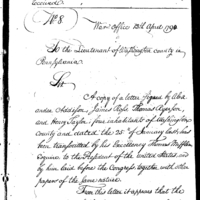 No 8
War Office 13th April 1790
To the Lieutenant of Washington county in
Pennsylvania
Sir
A copy of a letter signed by Alex
ander Addison, James Ross Thomas
and Henry Taylor, four inhabitants of Washington
county and dated the 25th of January last, has
been transmitted by his Excellency Thomas Mifflin
Esquire to the President of the United States and
by him laid before the Congress together with other
papers of the same nature.
From this letter it appears that the